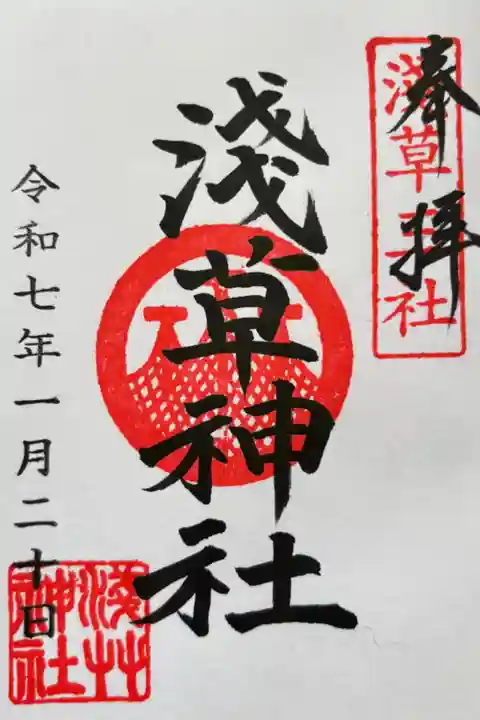 奉拝
淺草三社
淺草神社
令和七年一月二十日
淺草
神社